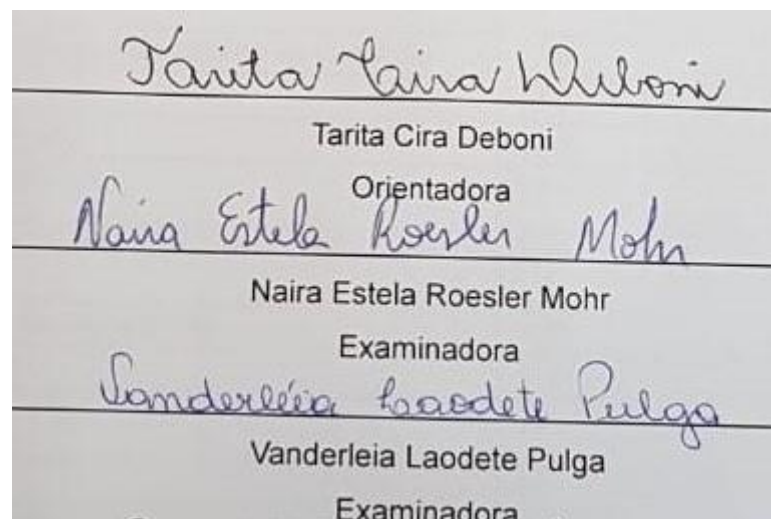 Tarita Caira Deboni
Tarita Cira Deboni
Orientadora
Naira Estela Roesler Mohr
Naira Estela Roesler Mohr
Examinadora
Vanderléia Laodete Pulga
Vanderleia Laodete Pulga
Examinadora